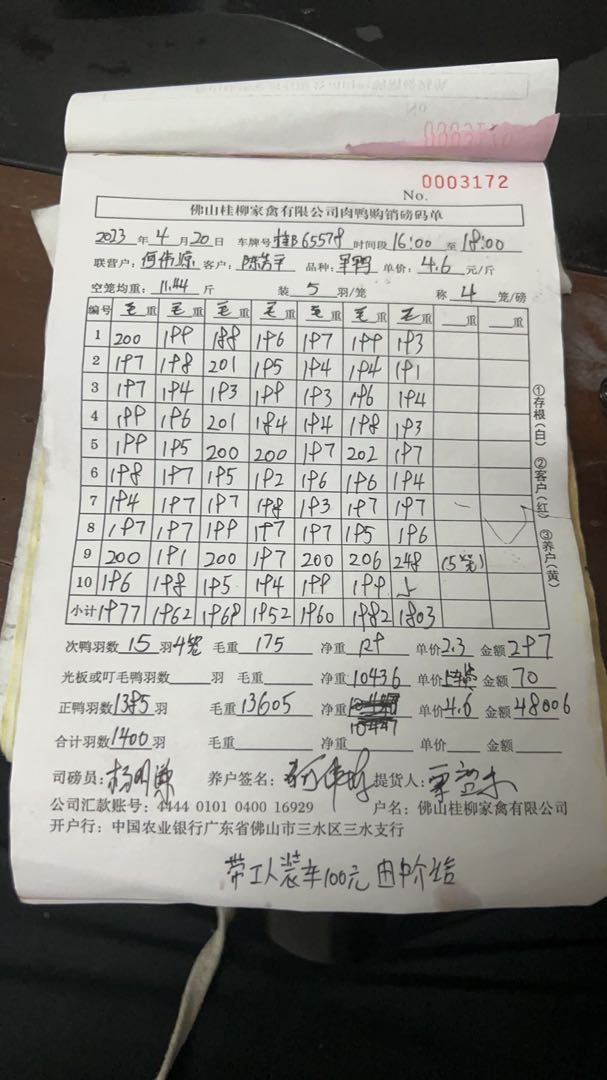 No. 0003172
佛山桂柳家禽有限公司肉鸭购销磅码单
2023 年 4 月 20 日 车牌号 桂B65578 时间段 16:00 至 18:00
联营户: 何伟源 客户: 品种: 单价: 4.6 元/斤
空笼均重: 11.44 斤 装 5 羽/笼 称 4 笼/磅
编号 毛重 毛重 毛重 毛重 毛重 毛重 毛重 重 重
1 200 199 188 196 197 199 193
2 197 198 201 195 194 194 191
3 197 194 193 199 193 196 194
4 199 196 201 184 194 198 193
5 199 195 200 200 197 202 197
6 198 197 195 192 196 196 194
7 194 197 197 198 193 197 197
8 197 197 199 197 197 195 196
9 200 191 200 197 200 206 248 (5笼)
10 196 198 195 194 199 199
小计 1977 1962 1969 1952 1960 1982 1803
①存根(白) ②客户(红) ③养户(黄)
次鸭羽数 15 羽 4笼 毛重 175 净重 129 单价 2.3 金额 297
光板或叮毛鸭羽数 羽 毛重 净重 10436 单价 金额 70
正鸭羽数 1385 羽 毛重 13605 净重 10447 单价 4.6 金额 48006
合计羽数 1400 羽 毛重 净重 单价 金额
司磅员: 养户签名: 提货人:
公司汇款账号: 4444 0101 0400 16929 户名: 佛山桂柳家禽有限公司
开户行: 中国农业银行广东省佛山市三水区三水支行
带工人装车100元 由中介给